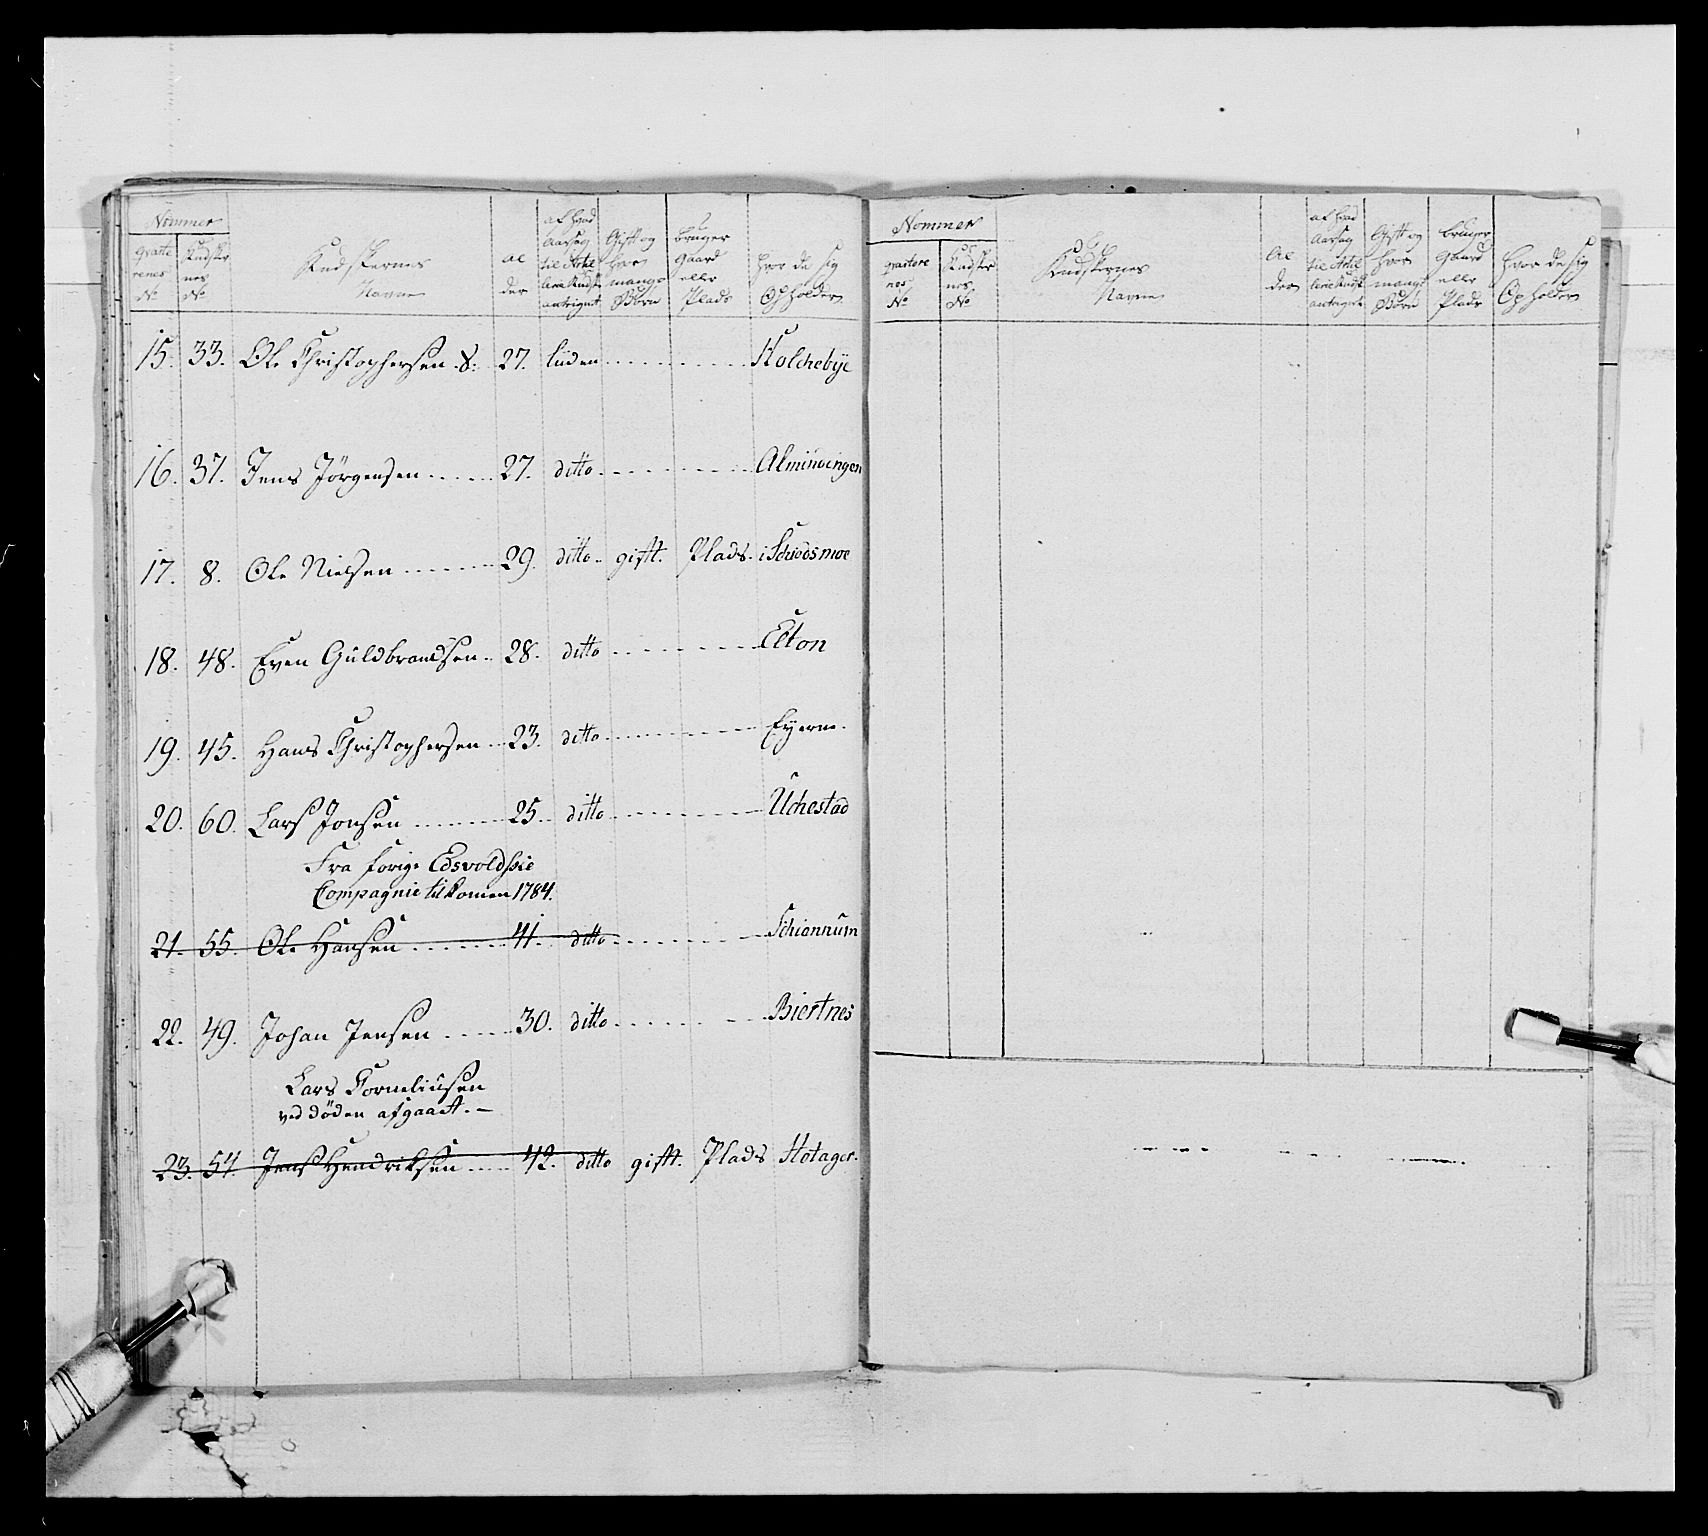 Nommer
Kudskernes Navne
Al der
af hvad Aarsag til Artilerie Kudsk antegnet
Gift og hvor mange Börn
bruger Gaard eller Plads
hvor de sig Opholder
15. 33. Ole Christophersen 8. 27. liiden Holchebÿe
16. 37. Jens Jörgensen 27. ditto Alminoingen
17. 8. Ole Nielsen 29. ditto gift. Plads. i Schiedsmoe
18. 48. Even Guldbrandsen 28. ditto Elton
19. 45. Hans Christophersen 23. ditto Eÿerne.
20. 60. Lars Jonsen 25. ditto Uchestad
Fra forige Edsvoldske
Compagnie tilkomen 1784.
21. 55. Ole Hansen 41. ditto Schiönnum
22. 49. Johan Jensen 30. ditto Biertnes
Lars Corneliusen
ved döden afgaaet. —
23. 54. Jens Hendriksen 42. ditto gift. Plads Hotager.
Nommer
Kudskernes Navne
Al der
af hvad Aarsag til Artilerie Kudsk antegnet
Gift og hvor mange Börn
bruger Gaard eller Plads
hvor de sig Opholder